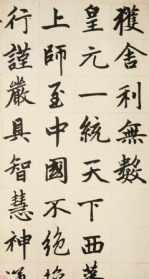 獲舍利無數
皇元一統天下西蕃
上師至中國不絕
行謹嚴具智慧神